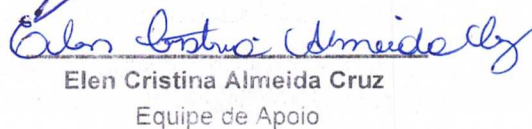 Elen Cristina Almeida Cruz
Elen Cristina Almeida Cruz
Equipe de Apoio